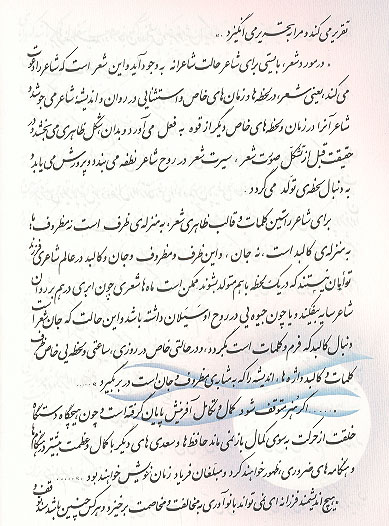 تقریر می کند و مرا به تحریر می انگیزد . «
۰ در مورد شعر، بایستی برای شاعر حالت شاعرانه به وجود آید و این شعر است که شاعر را دعوت
می کند، یعنی شعر، در لحظه ها و زمان های خاص و استثنایی در روان و اندیشه شاعر می جوشد و
شاعر آنرا در زمان و لحظه های خاص دیگر از قوه به فعل می آورد و بدان شکل ظاهری می بخشد، در
حقیقت قبل از تشکّل صورت شعر ، سیرت شعر در روح شاعر نطفه می بندد و پرورش می یابد و
به دنبال لحظه ی تولد می گردد .
برای شاعر راستین کلمات و قالب ظاهری شعر، به منزله ی ظرف است نه مظروف ها،
به منزله ی کالبد است ، نه جان ، و این ظرف و مظروف و جان و کالبد در عالم شاعری فرزند
توأمان نیستند که در یک لحظه با هم متولد بشوند. ممکن است ماه ها شعری چون ابری در هم بر روان
شاعر سایه بیفکند و یا چون جیوه یی در روح او سیلان داشته باشد و این حالت که جان شعر است
دنبال کالبد که فرم و کلمات است بگردد، و در حالتی خاص در روزی، ساعتی و لحظه یی خاص ظرف
کلمات و کالبد واژه ها، اندیشه را که به مثابه ی مظروف و جان است در بر بگیرد » .....
..... اگر هنر متوقف شود کمال و تکامل آفرینش پایان گرفته است و چون هیچگاه دستگاه
خلقت از حرکت به سوی کمال باز نمی ماند حافظ ها و سعدی های دیگر با کمال و عظمت بیشتر در جایگاه ها
و هنگامه های ضروری، ظهور خواهند کرد و مبلغان فریاد زمان خویش خواهند بود ......
» هیچ اندیشمند فرزانه ای نمی تواند با نوآوری به مخالفت و مخاصمت برخیزد و هر کس چنین باشد